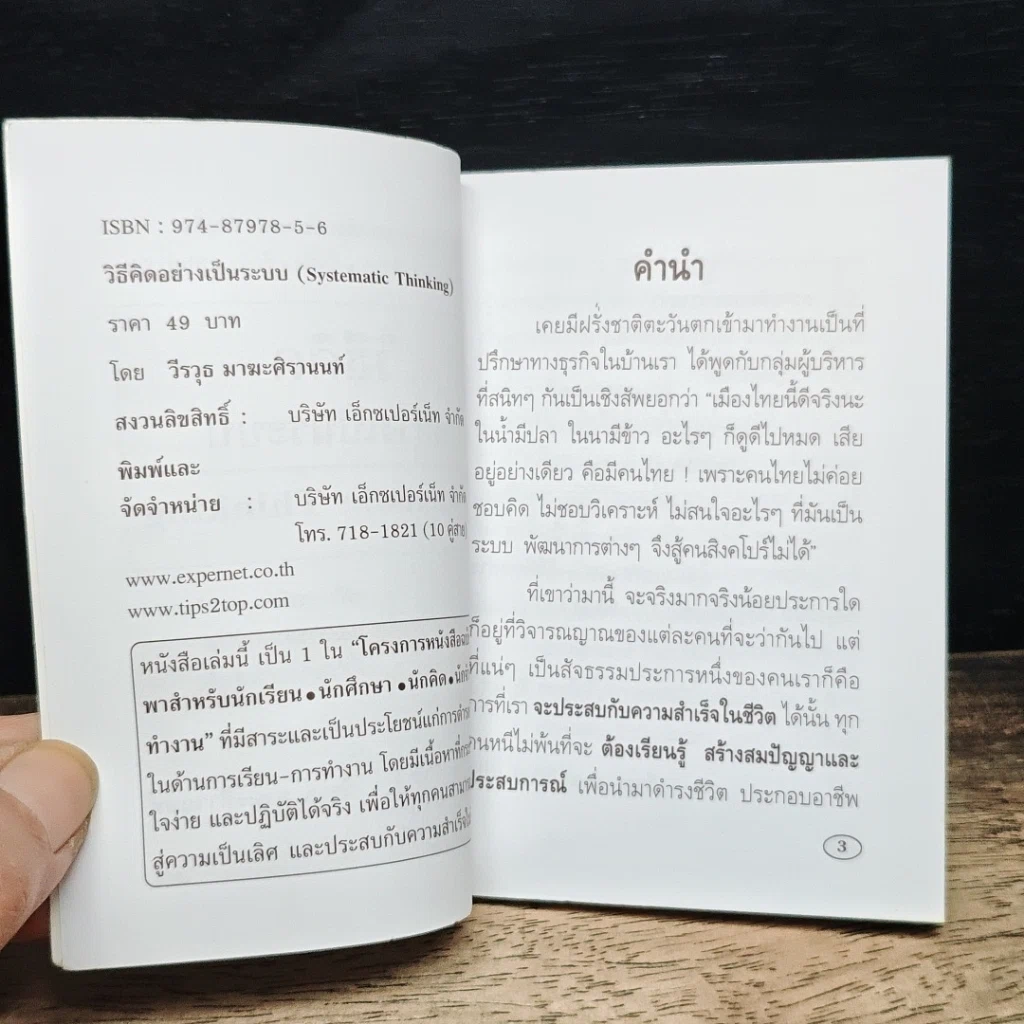 ISBN : 974-87978-5-6
วิธีคิดอย่างเป็นระบบ (Systematic Thinking)
ราคา 49 บาท
โดย วีรวุธ มาฆะศิรานนท์
สงวนลิขสิทธิ์ : บริษัท เอ็กซเปอร์เน็ท จำกัด
พิมพ์และ
จัดจำหน่าย : บริษัท เอ็กซเปอร์เน็ท จำกัด
โทร. 718-1821 (10 คู่สาย
www.expernet.co.th
www.tips2top.com
หนังสือเล่มนี้ เป็น 1 ใน “โครงการหนังสือ
พาสำหรับนักเรียน • นักศึกษา • นักคิด •
ทำงาน” ที่มีสาระและเป็นประโยชน์แก่การ
ในด้านการเรียน-การทำงาน โดยมีเนื้อหา
ใจง่าย และปฏิบัติได้จริง เพื่อให้ทุกคน
สู่ความเป็นเลิศ และประสบกับความสำเร็จ
คำนำ
เคยมีฝรั่งชาติตะวันตกเข้ามาทำงานเป็นที่
ปรึกษาทางธุรกิจในบ้านเรา ได้พูดกับกลุ่มผู้บริหาร
ที่สนิทๆ กันเป็นเชิงสัพยอกว่า “เมืองไทยนี้ดีจริงนะ
ในน้ำมีปลา ในนามีข้าว อะไรๆ ก็ดูดีไปหมด เสีย
อยู่อย่างเดียว คือมีคนไทย ! เพราะคนไทยไม่ค่อย
ชอบคิด ไม่ชอบวิเคราะห์ ไม่สนใจอะไรๆ ที่มันเป็น
ระบบ พัฒนาการต่างๆ จึงสู้คนสิงคโปร์ไม่ได้”
ที่เขาว่ามานี้ จะจริงมากจริงน้อยประการใด
ก็อยู่ที่วิจารณญาณของแต่ละคนที่จะว่ากันไป แต่
ที่แน่ๆ เป็นสัจธรรมประการหนึ่งของคนเราก็คือ
การที่เรา จะประสบกับความสำเร็จในชีวิต ได้นั้น ทุก
คนหนีไม่พ้นที่จะ ต้องเรียนรู้ สร้างสมปัญญาและ
ประสบการณ์ เพื่อนำมาดำรงชีวิต ประกอบอาชีพ
3